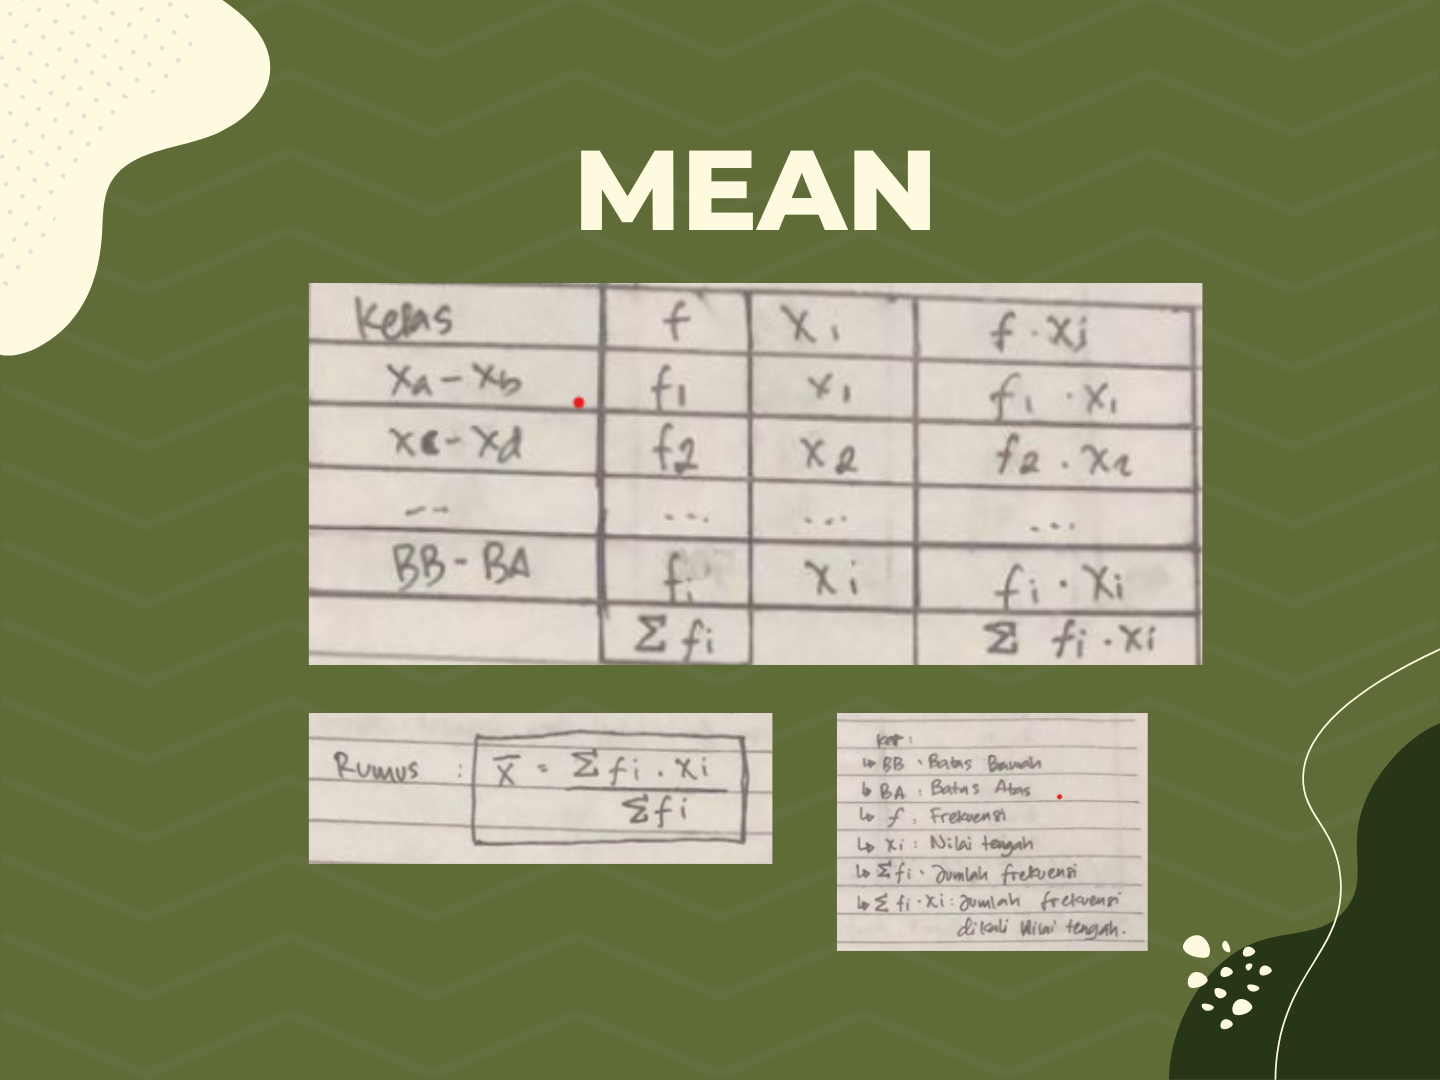 MEAN
Kelas f Xi f · Xi
Xa - Xb f1 x1 f1 · X1
Xc - Xd f2 X2 f2 · X2
... ... ... ...
BB - BA fi Xi fi · Xi
Σ fi Σ fi · Xi
Rumus : x̄ = Σ fi . xi / Σ fi
Ket :
↳ BB : Batas Bawah
↳ BA : Batas Atas
↳ f : Frekuensi
↳ xi : Nilai tengah
↳ Σ fi : Jumlah frekuensi
↳ Σ fi · xi : Jumlah frekuensi
dikali Nilai tengah.